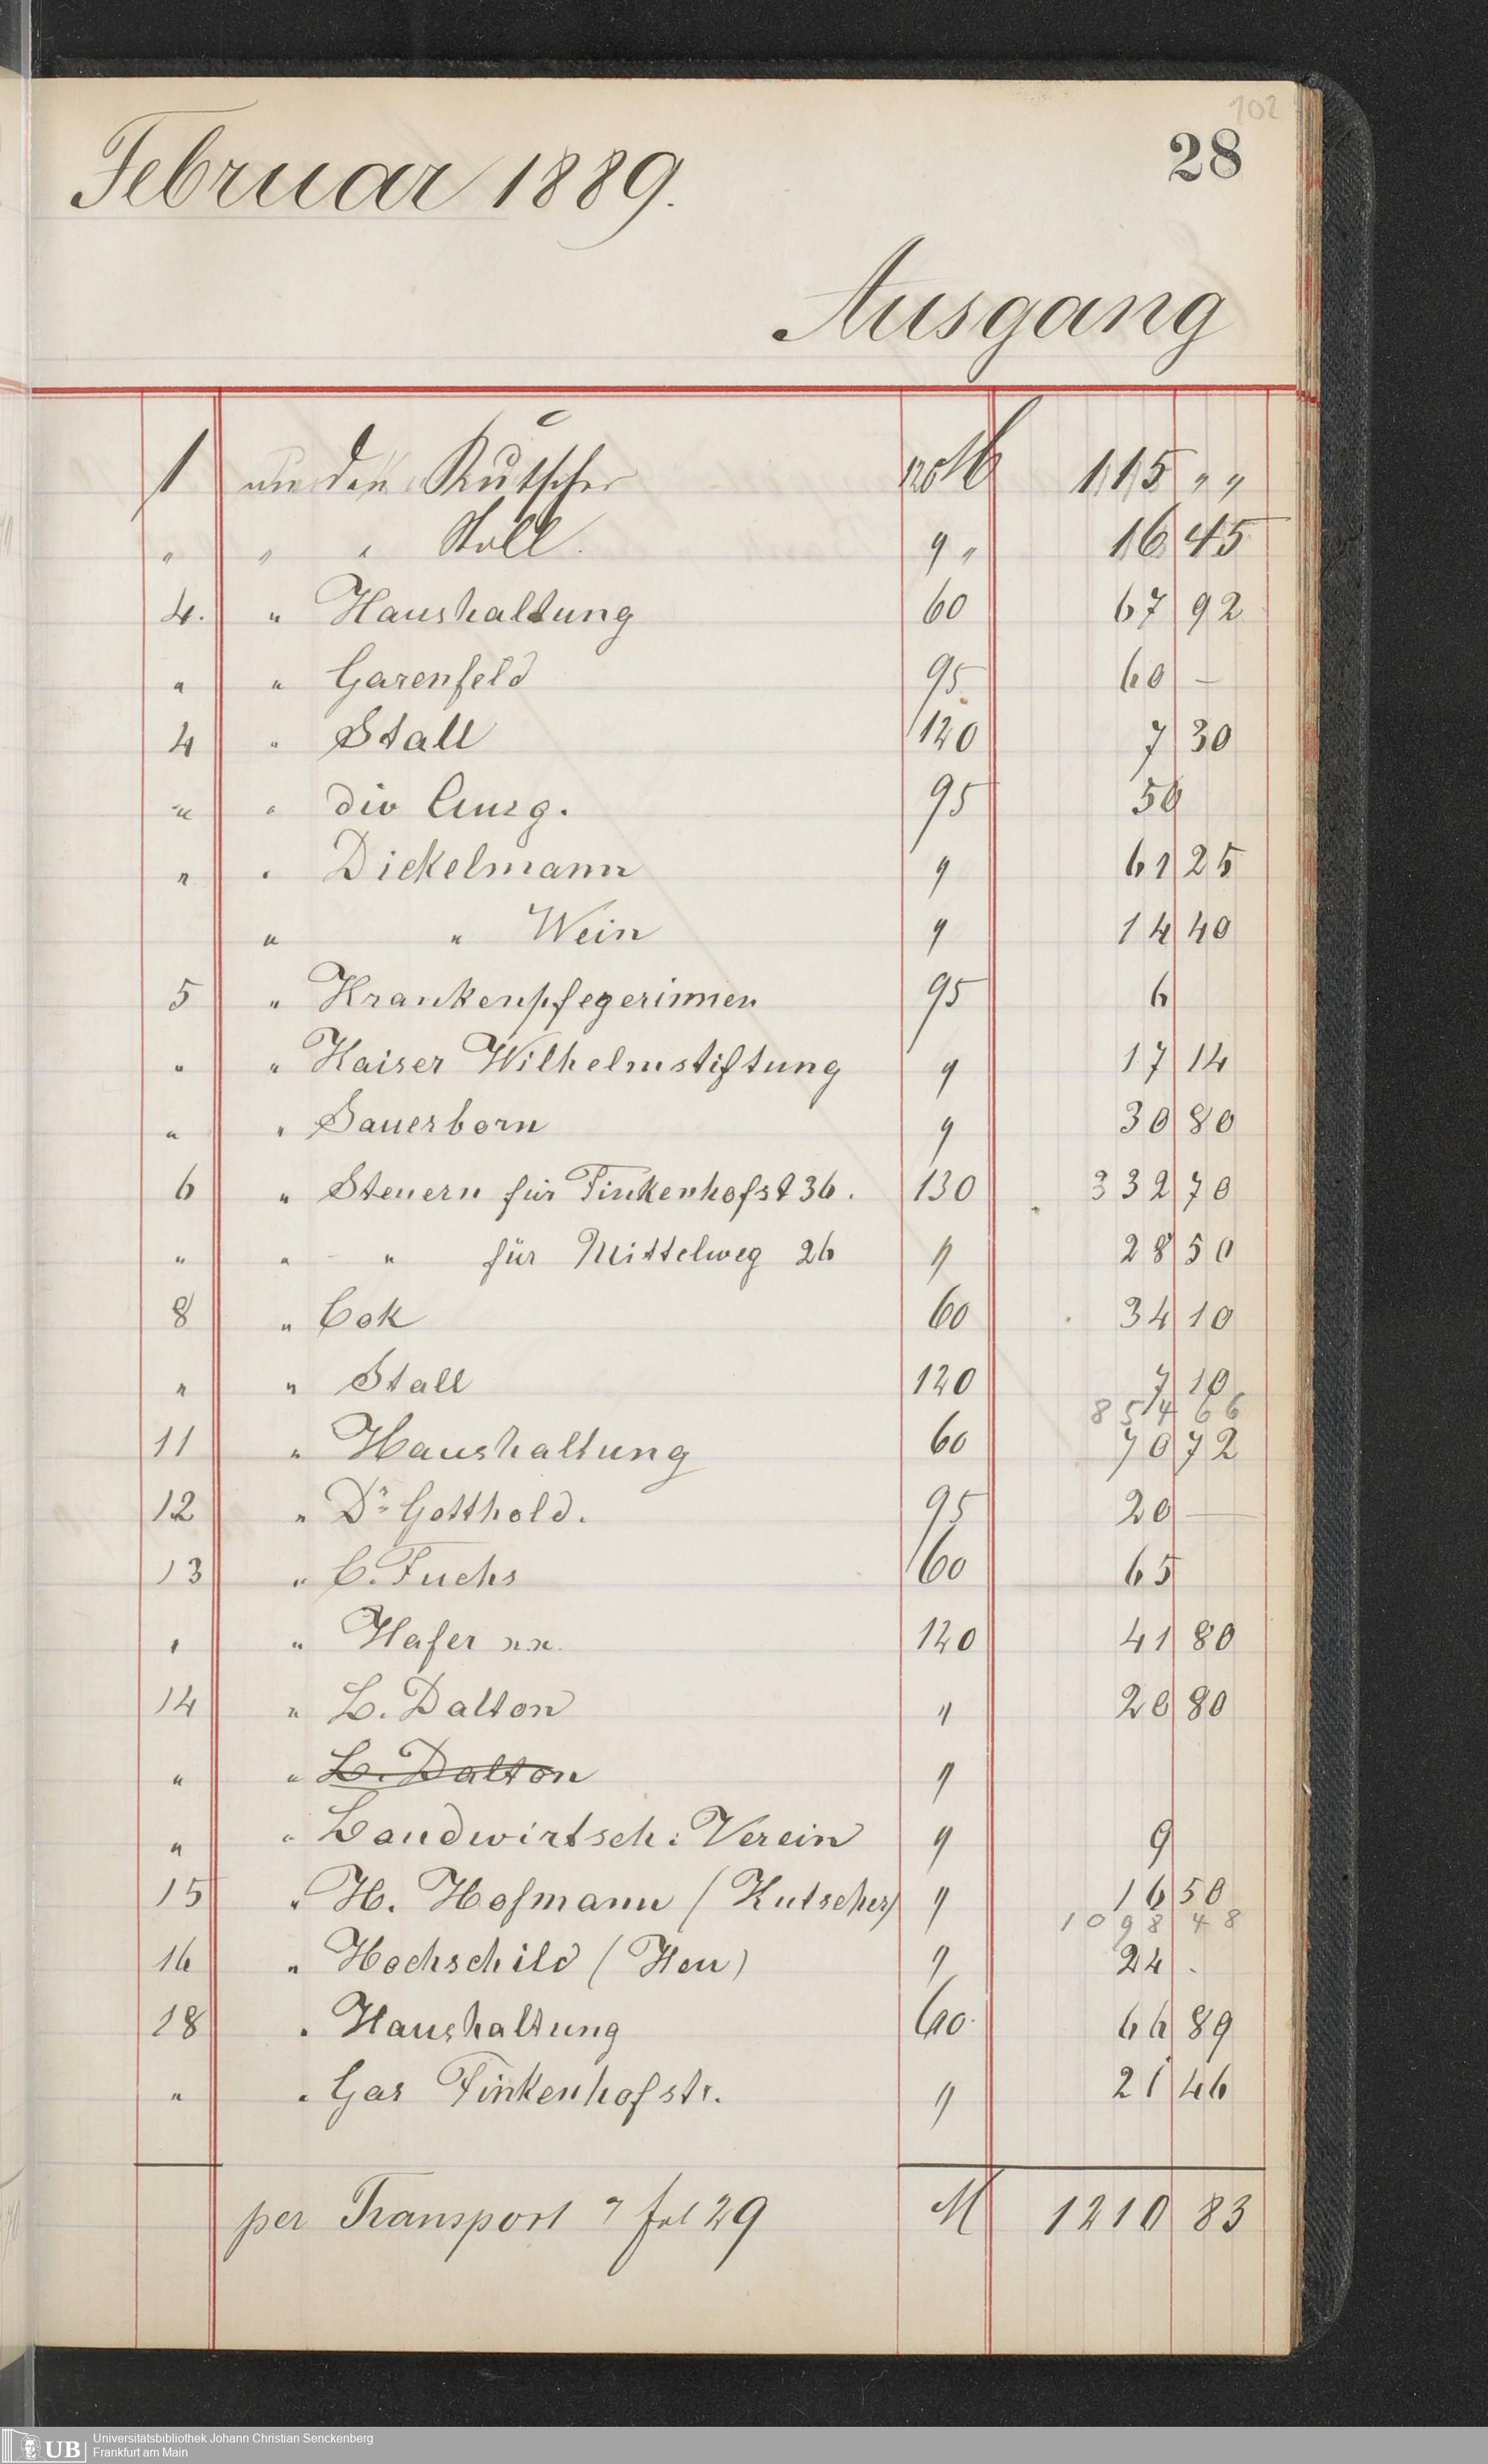 102
28
Februar 1889.
Ausgang
1 an den Kutscher 120 M 115 " "
" " " Stall. " " 16 45
4. " Haushaltung 60 67 92
" " Garenfeld 95 60 –
4 " Stall 120 7 30
" " div Ausg. 95 50
" " Dickelmann " 61 25
" " Wein " 14 40
5 " Krankenpfegerinnen 95 6
" " Kaiser Wilhelmstiftung " 17 14
" " Sauerborn " 30 80
6 " Steuern für Finkenhofst 36. 130 332 70
" " " für Mittelweg 26 " 28 50
8 " Cok 60 34 10
" " Stall 120 7 10
854 66
11 " Haushaltung 60 70 72
12 " Dr Gotthold. 95 20 –
13 " C. Fuchs 60 65
" " Hafer xx. 120 41 80
14 " L. Dalton " 20 80
" " L. Dalton "
" " Landwirtsch: Verein " 9
15 " H. Hofmann (Kutscher) " 16 50
1098 48
16 " Hochschild (Heu) " 24 .
18 " Haushaltung 60. 66 89
" " Gas Finkenhofstr. " 21 46
per Transport fol 29 M 1210 83
UB
Universitätsbibliothek Johann Christian Senckenberg
Frankfurt am Main